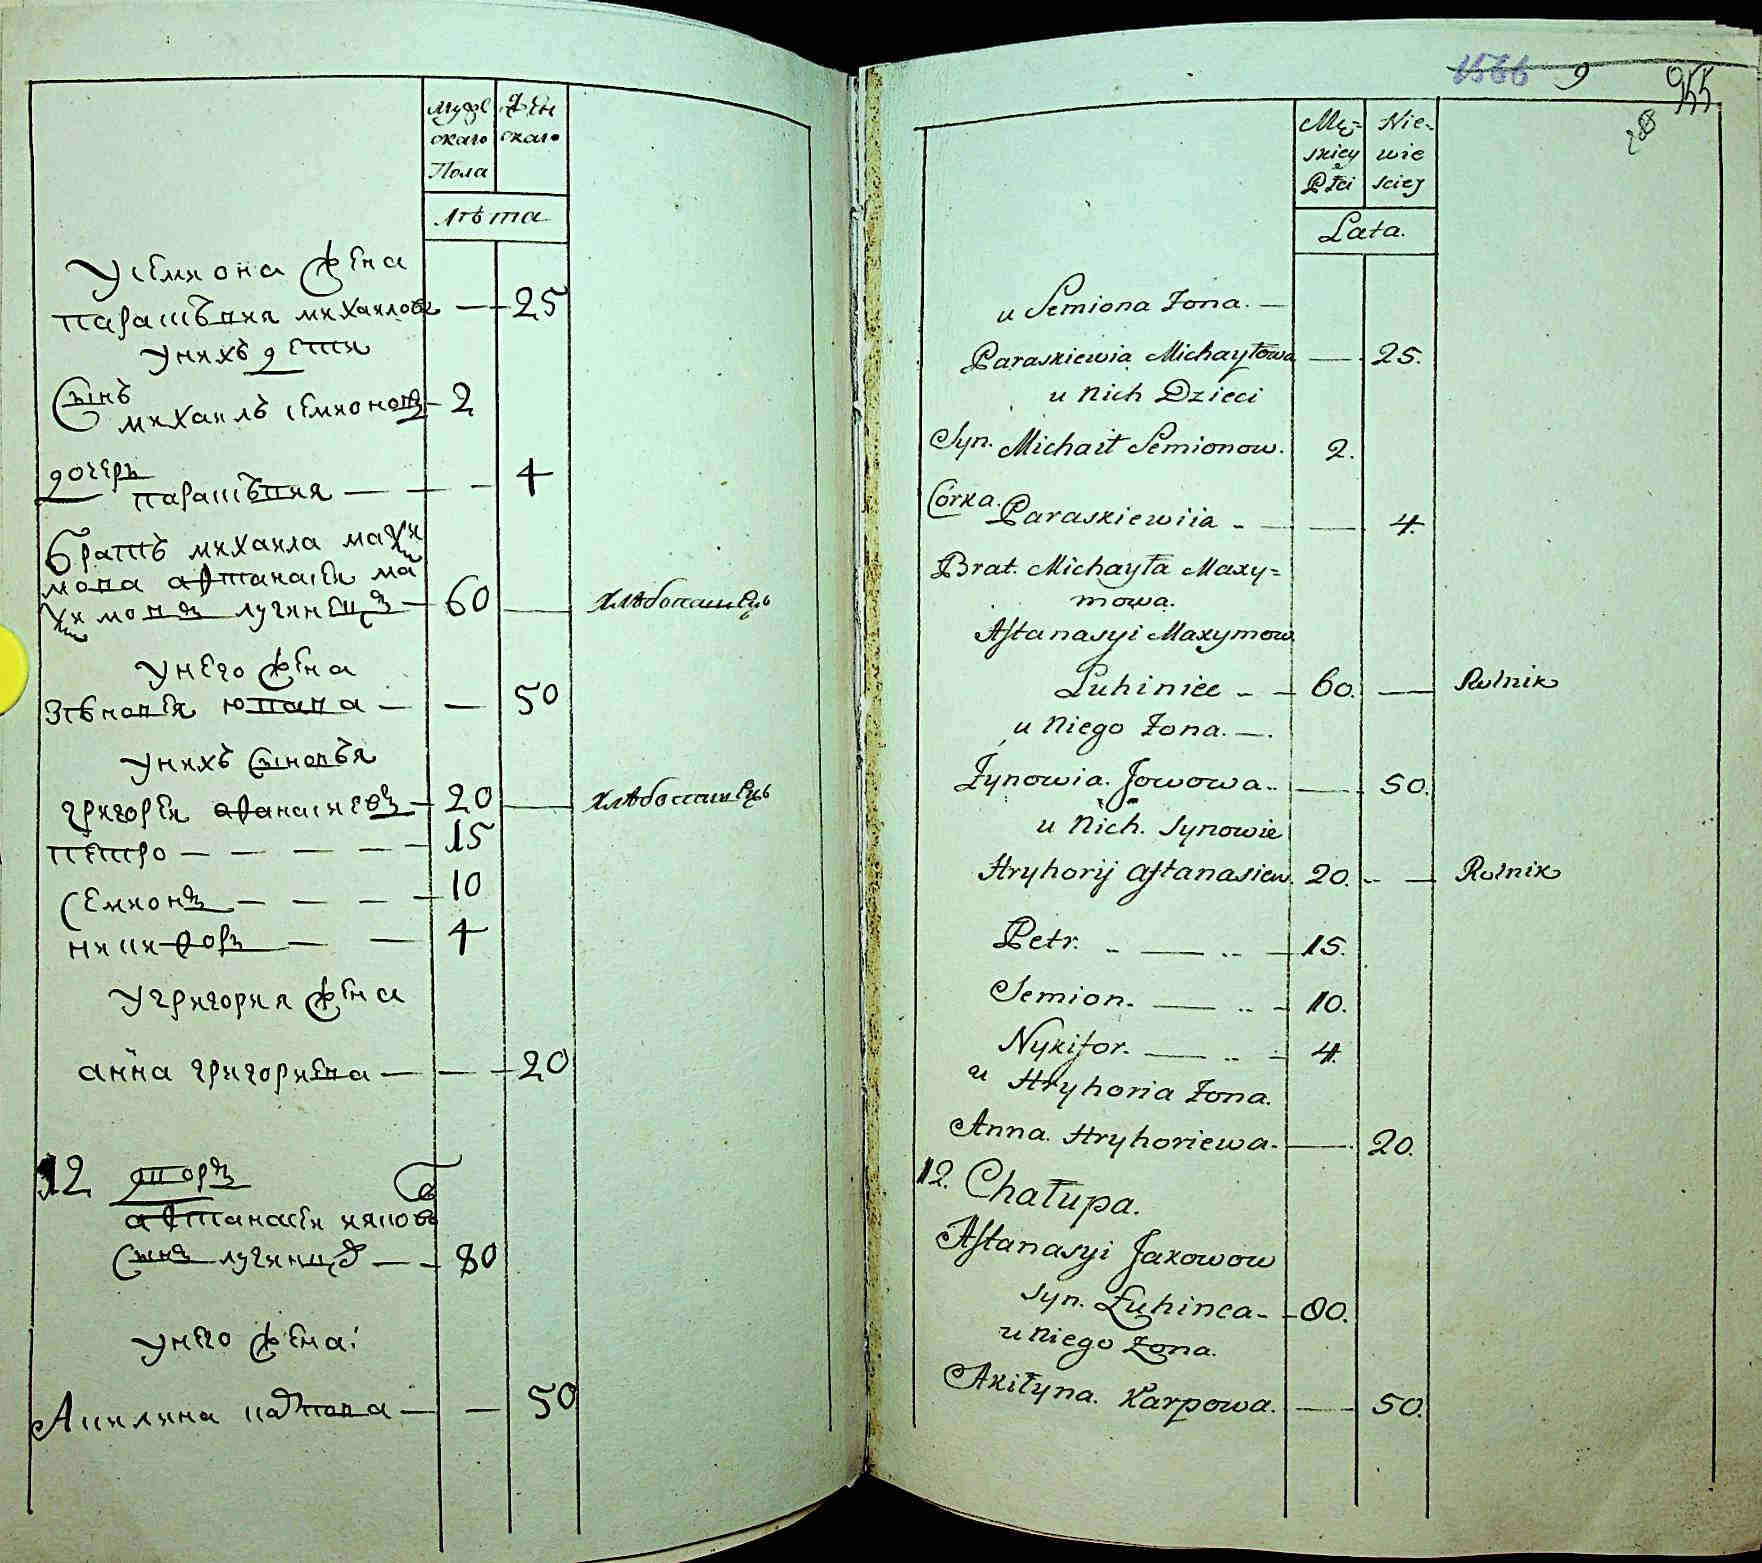 Мужескаго Пола
Женскаго
Лѣта
У Семиона жена
Парасъвия Михаилова — 25
У нихъ дети
Сынъ
Михаилъ Семионовъ 2
дочерь
Парасъвия — — — 4
Братъ Михаила Макси
мова Афтанасеи Ма
ксимовъ Лугинецъ — 60 — Хлѣбопашецъ
У него жена
Зѣновея Ювова — — 50
У нихъ сыновъя
Григореи Афанасиевъ — 20 — Хлѣбопашецъ
Петро — — — — — 15
Семионъ — — — — 10
Никифоръ — — 4
У Григория жена
Анна Григориева — — 20
12 Дворъ
Афтанасеи Яковъ
Сынъ Лугинца — — 80
У него жена:
Акилина Карпова — — 50
1566 9 955
Mę=
skiey
Płci
Nie-
wie
sciej
Lata.
u Semiona Żona. —
Paraskiewia Michayłowa — 25.
u Nich Dzieci
Syn. Michaił Semionow. 2.
Córka. Paraskiewiia - — — 4.
Brat. Michayła Maxy=
mowa.
Aftanasyi Maxymow
Łuhiniec - — 60. — Rolnik
u Niego Żona. —.
Zynowia. Jowowa - — 50.
u Nich. Synowie
Hryhorij Aftanasiew. 20. - — Rolnik
Petr. - — .. — 15.
Semion. — .. - 10.
Nykifor. — .. - 4.
u Hryhoria Żona.
Anna. Hryhoriewa - — 20.
12. Chałupa.
Aftanasyi Jakowow
Syn. Łuhinca - - 80.
u Niego Żona.
Akiłyna. Karpowa. — 50.